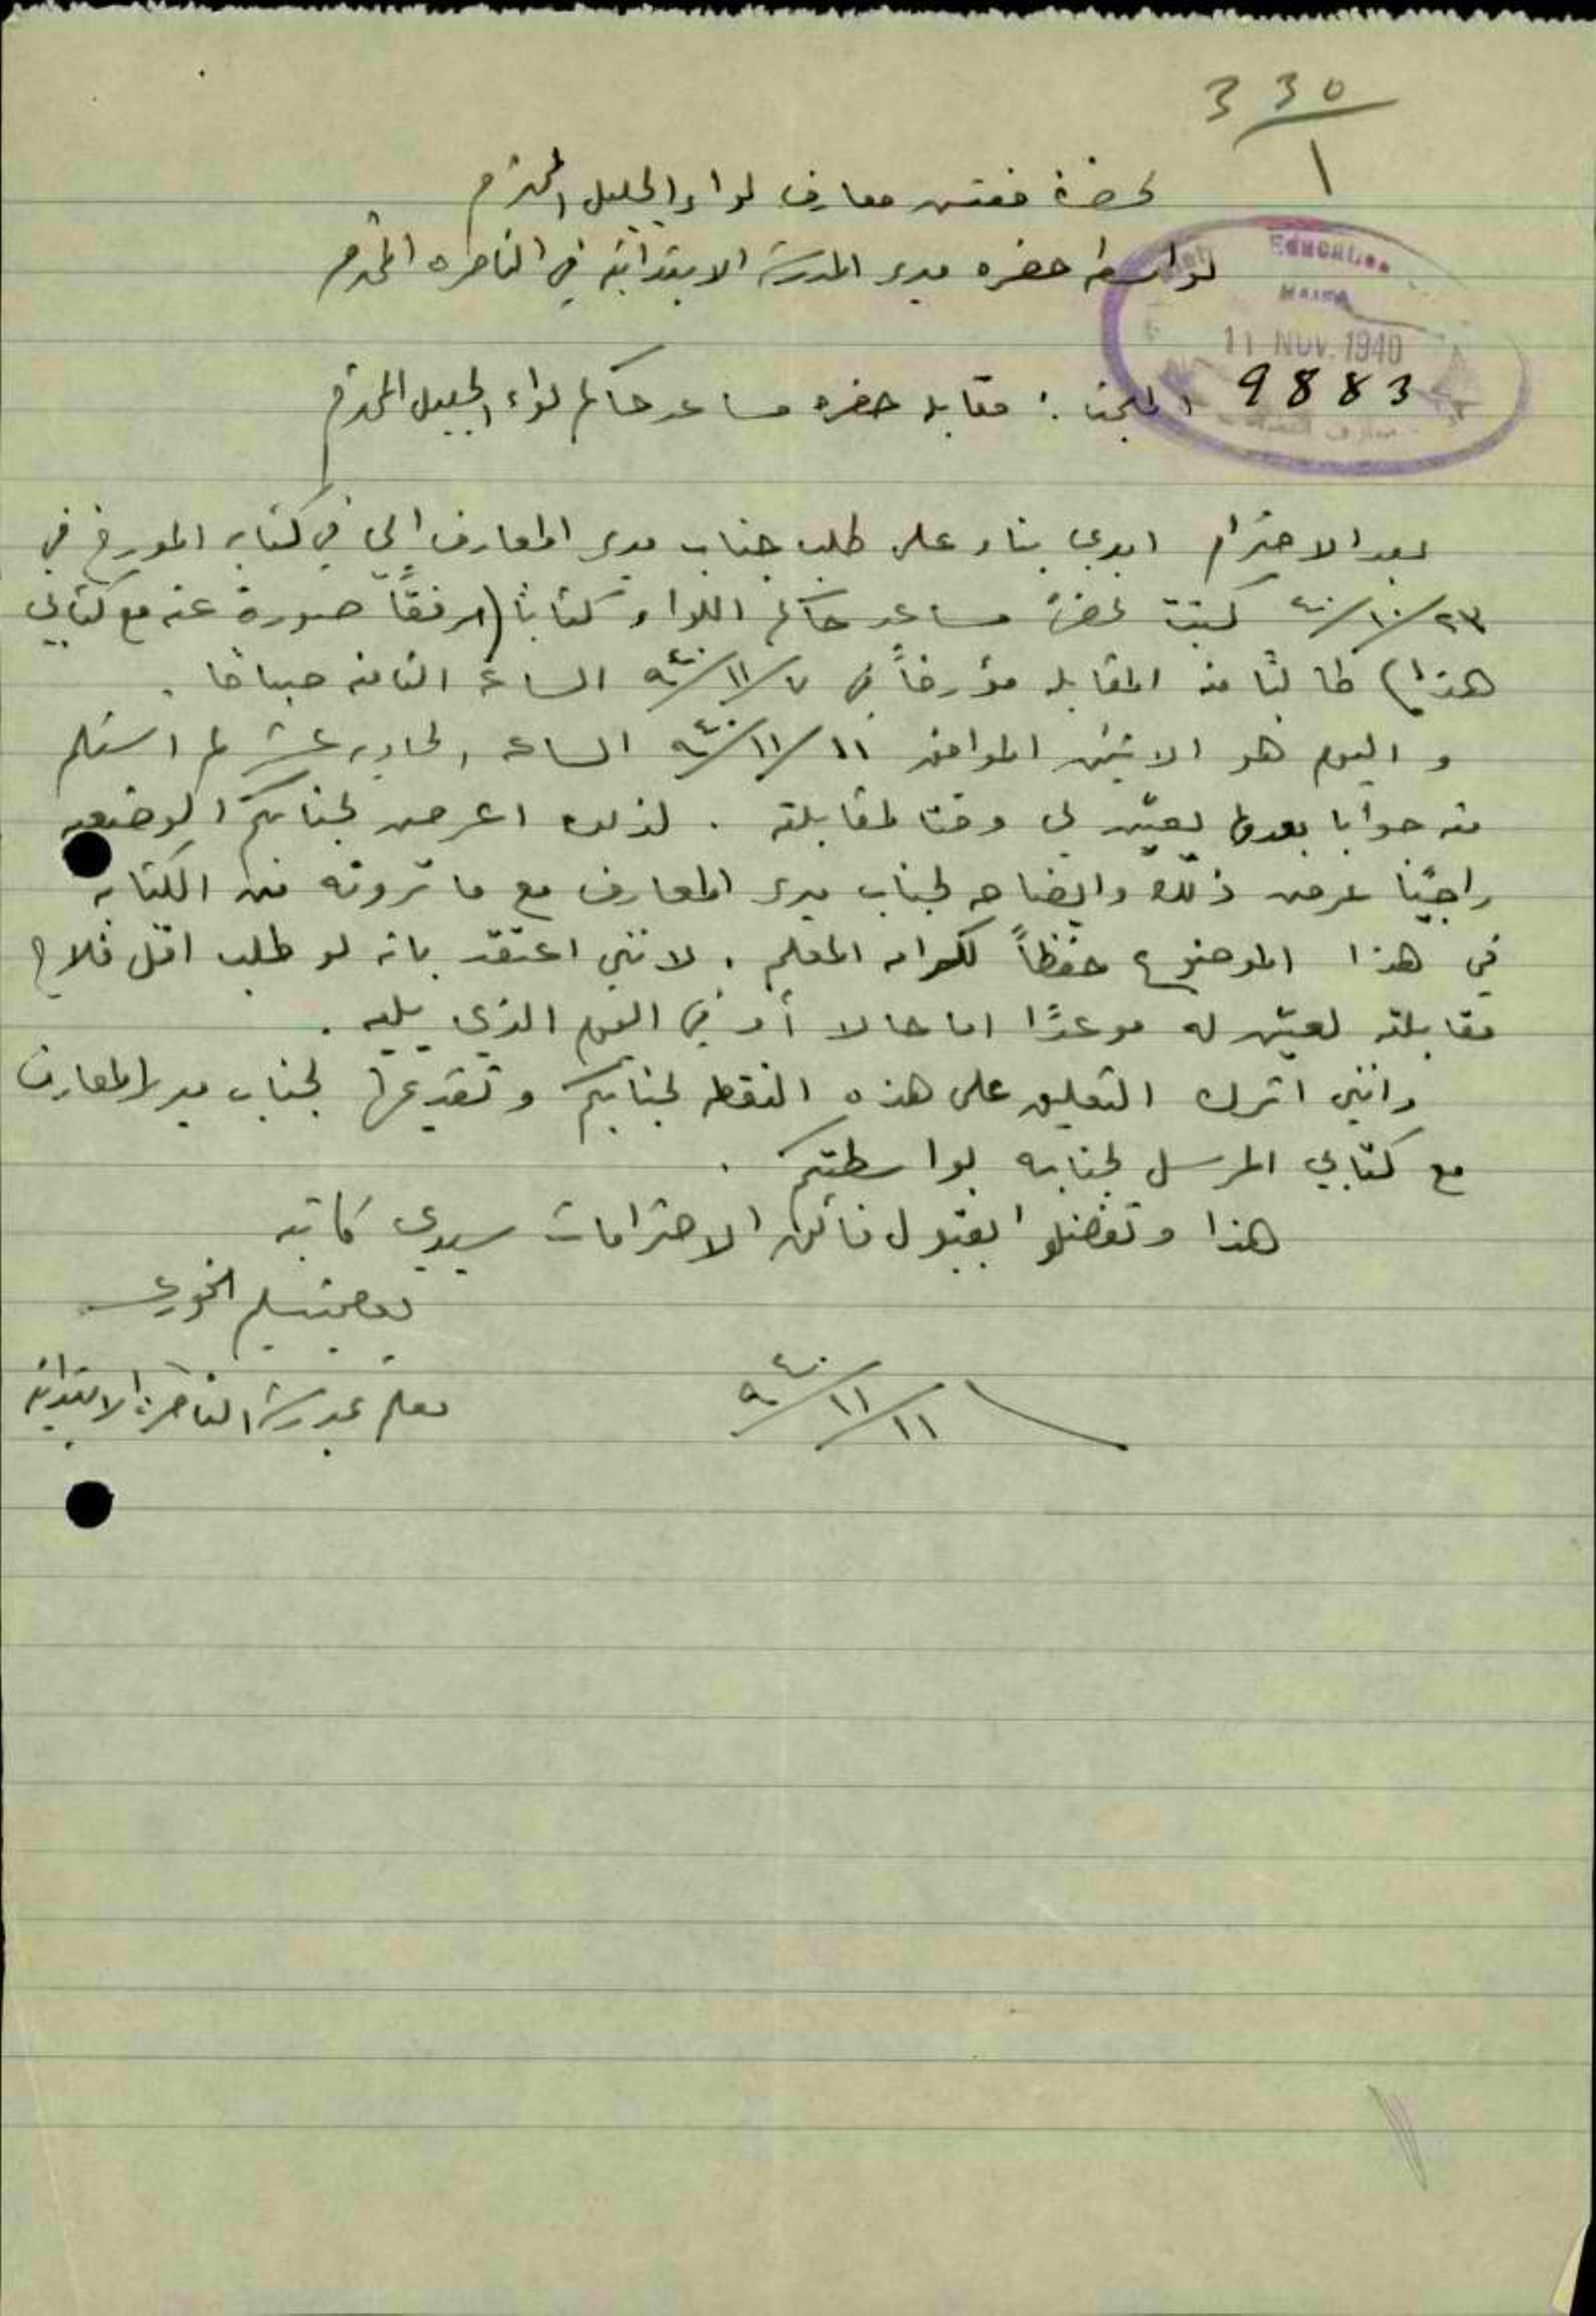 330
1
لحضرة مفتش معارف لواء الجليل المحترم
بواسطة حضره مدير المدرسة الابتدائية في الناصره المحترم
EDUCATION
HAIFA
11 NOV. 1940
9883
مقابلة حضره مساعد حاكم لواء الجليل المحترم
بعد الاحترام ابدي بناء على طلب جناب مدير المعارف الي في كتابه المورخ في
٢٣/١٠/٤٠ كتبت لحضرة مساعد حاكم اللواء كتابا (مرفقًا صورة عنه مع كتابي
هذا) طالبًا منه المقابله مؤرخاً في ٧/١١/٩٤٠ الساعة الثامنه صباحا .
و اليوم هو الاثنين الموافق ١١/١١/٩٤٠ الساعه الحاديه عشر لم استلم
منه جوابا يعين لي وقتا لمقابلته . لذلك اعرض لجنابكم الوضعيه
راجيًا عرض ذلك وايضاحه لجناب مدير المعارف مع ما ترونه من الكتابه
في هذا الموضوع حفظاً لكرامه المعلم . لانني اعتقد بانه لو طلب اقل فلاح
مقابلته لعين له موعدًا اما حالا أو في اليوم الذي يليه .
وانني اترك التعليق على هذه النقطه لجنابكم و تقديمها لجناب مدير المعارف
مع كتابي المرسل لجنابه بواسطتكم .
هذا وتفضلوا بقبول فائق الاحترامات سيدي كاتبه
الخوري
معلم بمدرسة الناصرة الابتدائيه
١١/١١/٩٤٠